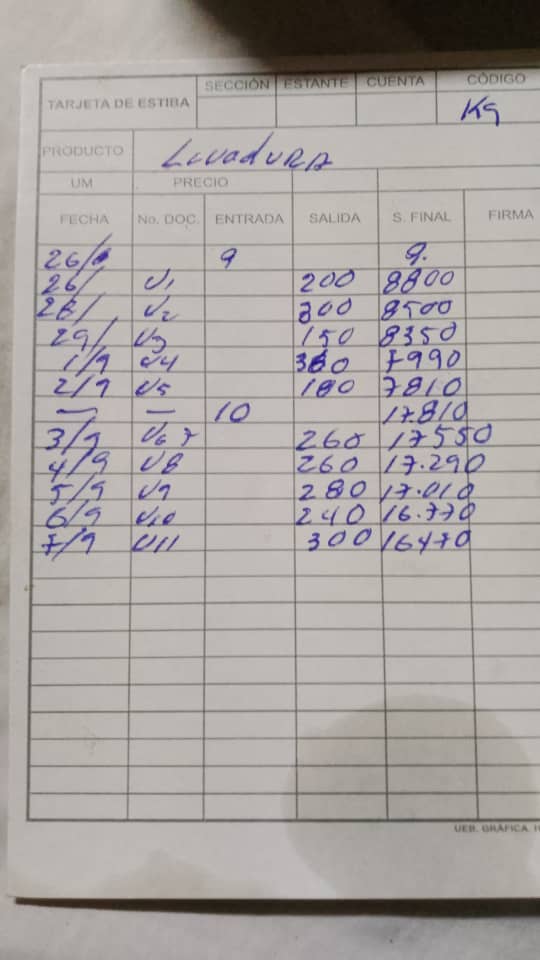 TARJETA DE ESTIBA SECCIÓN ESTANTE CUENTA CÓDIGO
Kg
PRODUCTO Levadura
UM PRECIO
FECHA No. DOC. ENTRADA SALIDA S. FINAL FIRMA
26/8 9 9.
26/ V1 200 8800
28/ V2 300 8500
29/ V3 150 8350
1/9 V4 360 7990
2/9 V5 180 7810
— — 10 17.810
3/9 V6 7 260 17550
4/9 V8 260 17.290
5/9 V9 280 17.010
6/9 V10 240 16.770
7/9 V11 300 16470
UEB. GRÁFICA